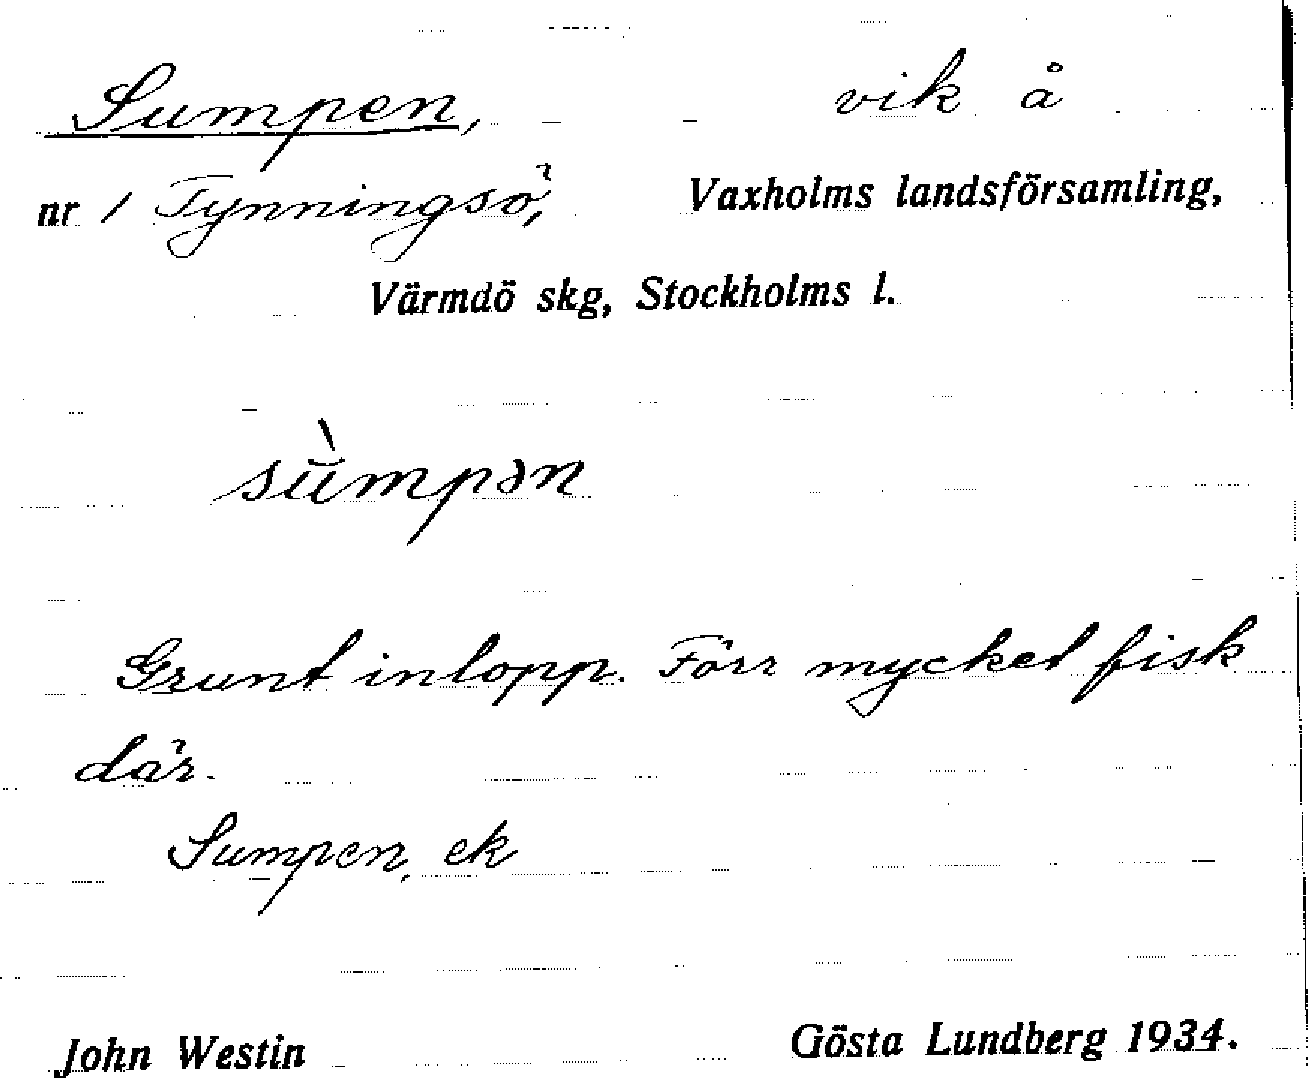 Sumpen, vik å
nr 1 Tynningsö, Vaxholms landsförsamling,
Värmdö skg, Stockholms l.
sùmpən
Grunt inlopp. Förr mycket fisk
där.
Sumpen, ek
John Westin Gösta Lundberg 1934.